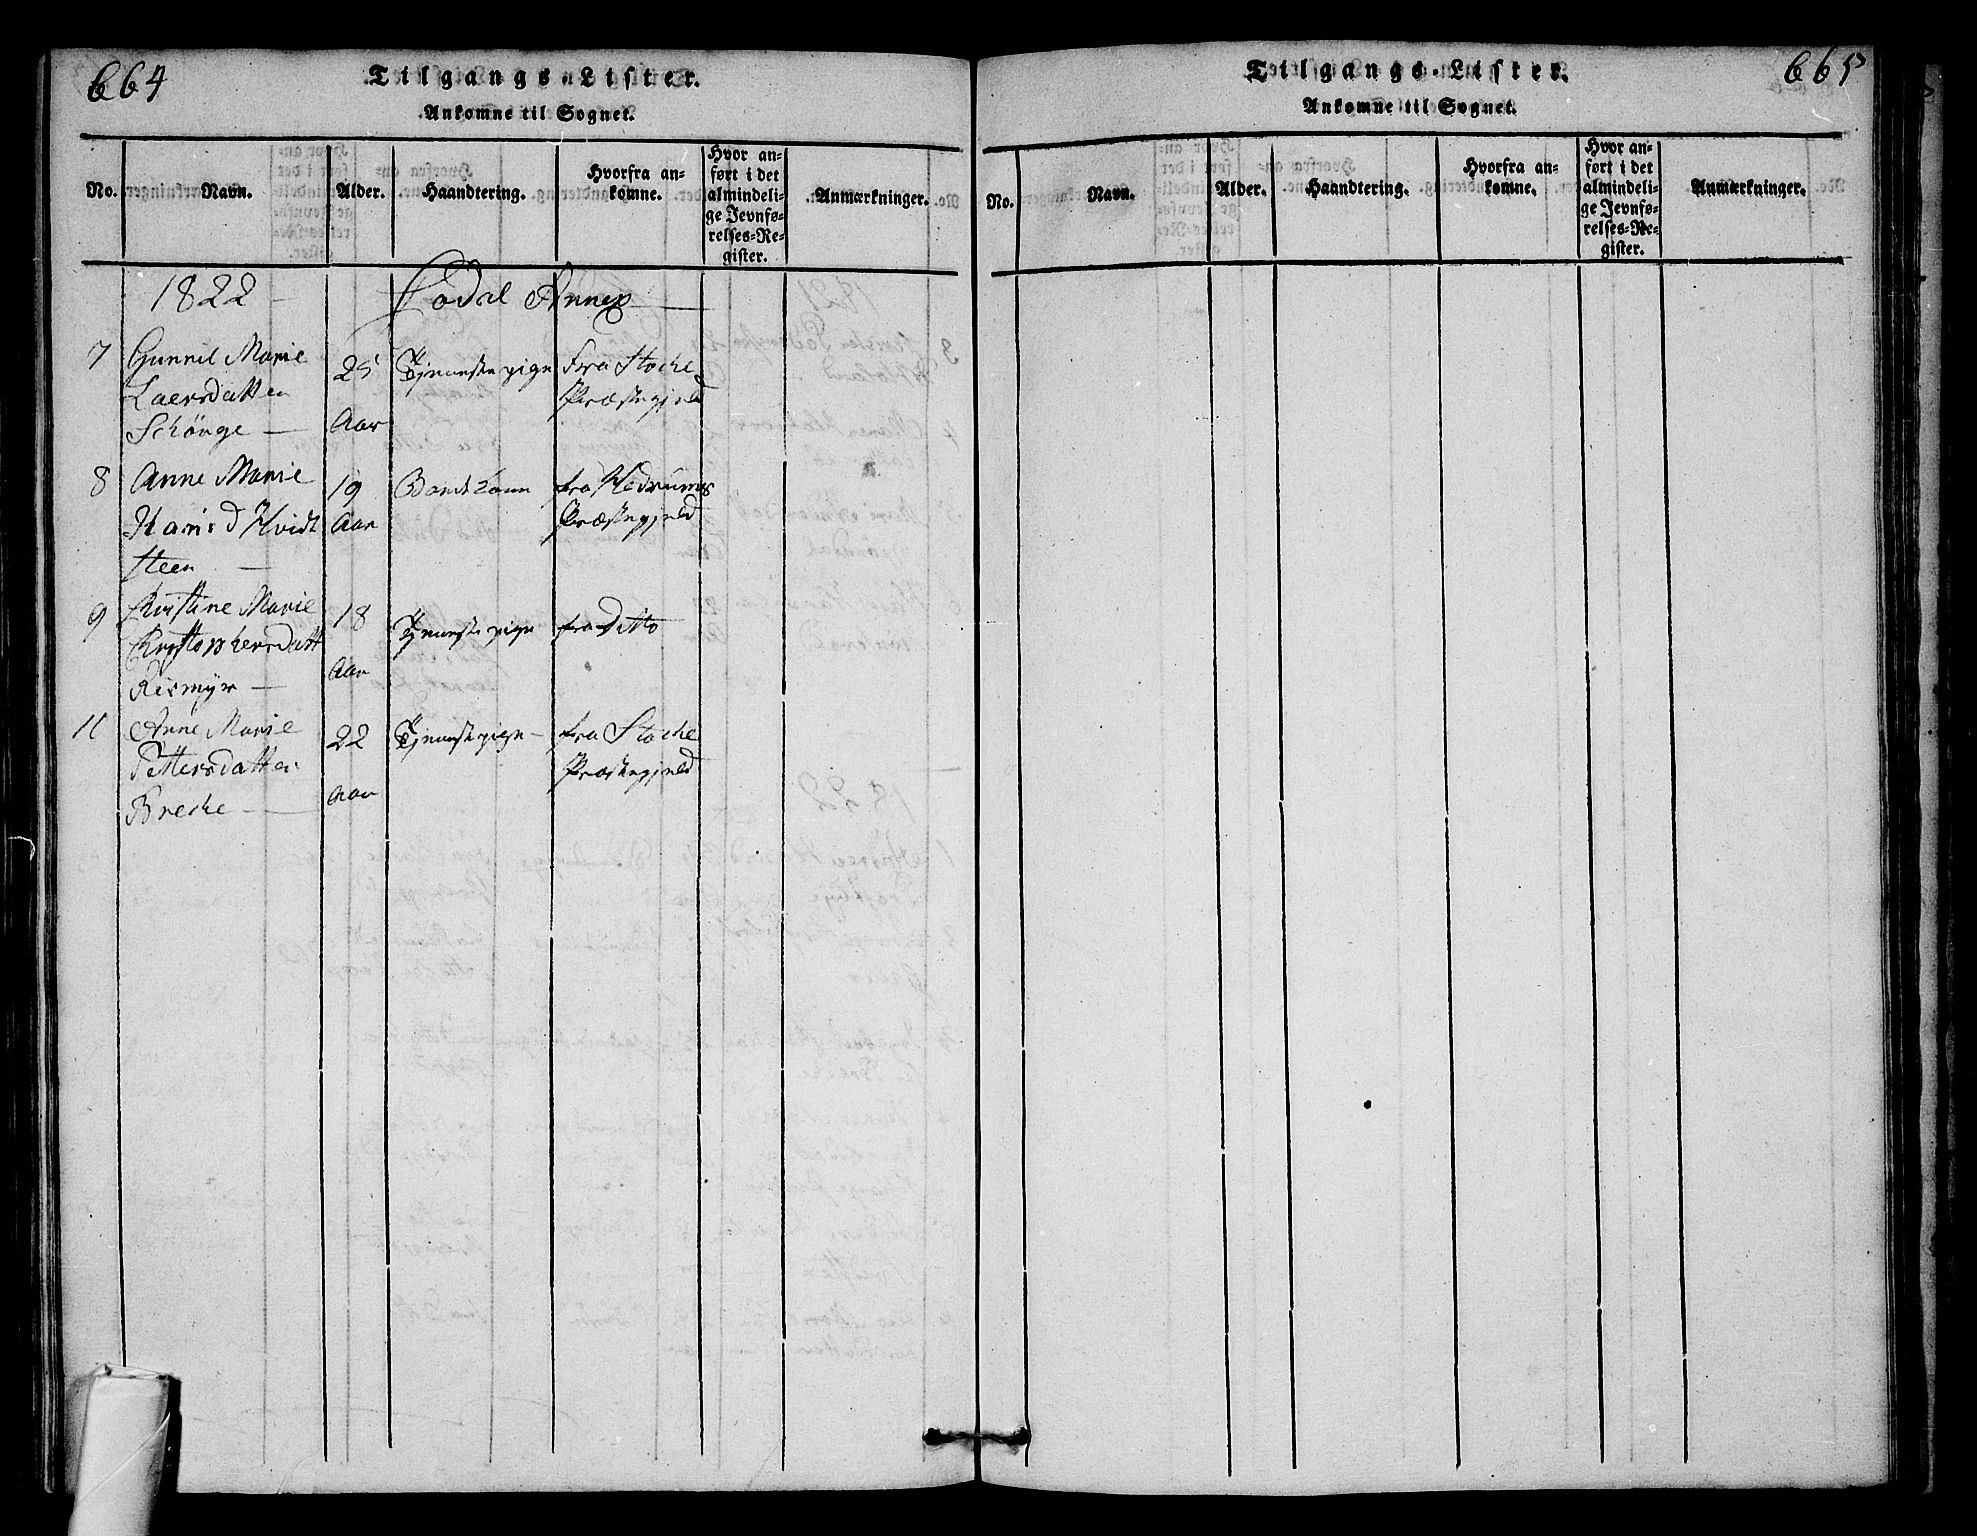 664
Tilgangs-Lister.
Ankomne til Sognet.
No.
Navn.
Alder.
Haandtering.
Hvorfra an-
komne.
Hvor an-
ført i det
almindeli-
ge Jevnfø-
relses-Re-
gister.
Anmærkninger.
1822 - Codal Annex
7 Gunnil Marie
Laersdatten
Schönge —
25
Aar
Tjenneste pige
Fra Stoche
Præstegjeld
8 Anne Marie
Hans d Hvidt
steen —
19
Aar
fra Hedrums
Præstegjeld
9 Kristine Marie
Krystophersdatt
Rismyr —
18
Aar
Tjeneste pige
fra Ditto
11 Anne Marie
Pettersdatter
Breche —
22
Aar
Tjeneste pige -
fra Stoche
Præstegjeld
665
Tilgangs-Lister.
Ankomne til Sognet.
No.
Navn.
Alder.
Haandtering.
Hvorfra an-
komne.
Hvor an-
ført i det
almindeli-
ge Jevnfø-
relses-Re-
gister.
Anmærkninger.